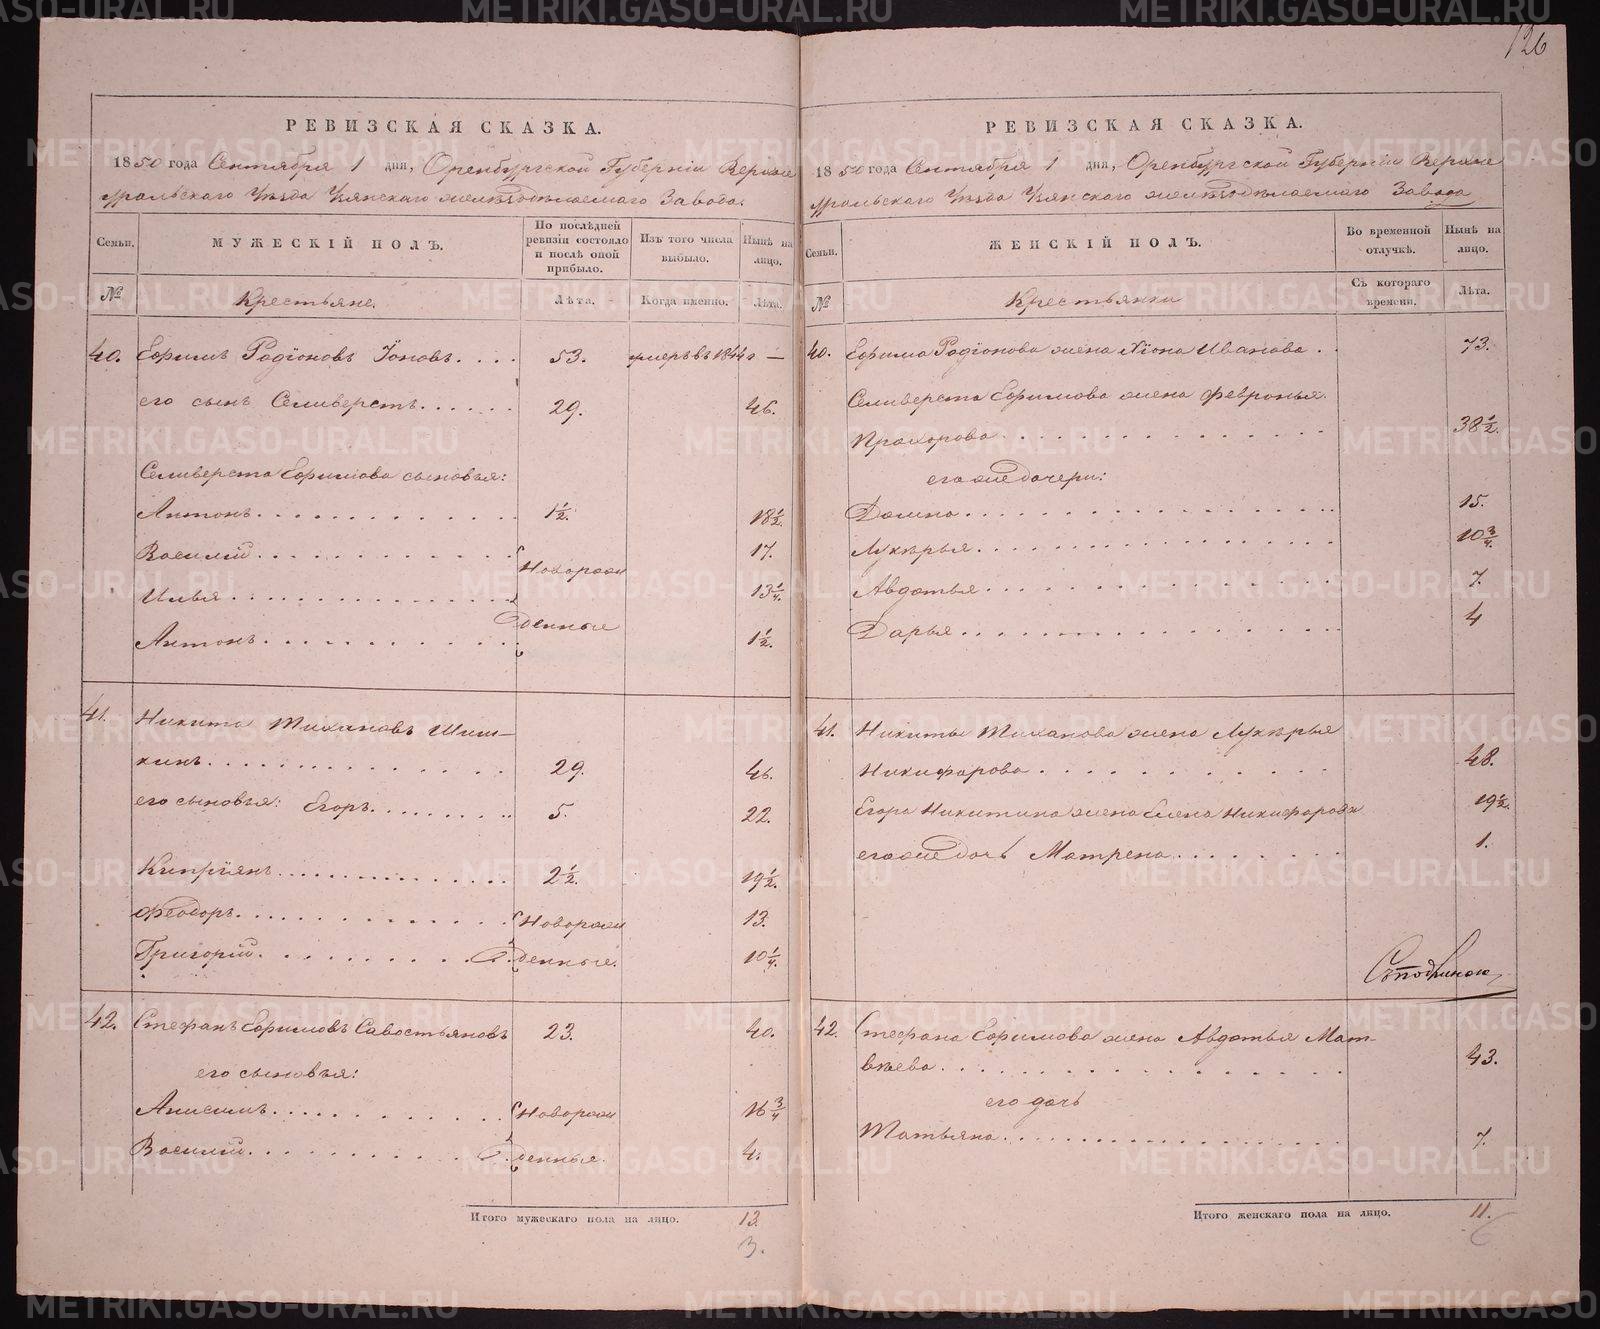 126
РЕВИЗСКАЯ СКАЗКА.
1850 года Сентября 1 дня, Оренбургской Губерніи Верхне
уральскаго Уѣзда Узянскаго желѣзодѣлаемаго Завода.
Семьи.
МУЖЕСКІЙ ПОЛЪ.
По послѣдней ревизіи состояло и послѣ оной прибыло.
Изъ того числа выбыло.
Нынѣ на лицо.
№
Крестьяне.
Лѣта.
Когда именно.
Лѣта.
40. Ефимъ Родіоновъ Іоновъ.... 53. умеръ въ 1844 г —
его сынъ Селиверстъ...... 29. 46.
Селиверста Ефимова сыновья:
Антонъ 1½. 18½.
Василій 17.
Новорож
Илья 13¼.
денные
Антонъ 1½.
41. Никита Тихановъ Шиш—
кинъ 29. 46.
его сыновья: Егоръ 5. 22.
Кипріянъ 2½. 19½.
Феодоръ Новорож 13.
Григорій денные. 10¼.
42. Стефанъ Ефимовъ Савостьяновъ 23. 40.
его сыновья:
Анисимъ Новорож 16¾
Василій денные. 4.
Итого мужескаго пола на лицо. 13.
3.
РЕВИЗСКАЯ СКАЗКА.
1850 года Сентября 1 дня, Оренбургской Губерніи Верхне
уральскаго Уѣзда Узянскаго желѣзодѣлаемаго Завода
Семьи.
ЖЕНСКІЙ ПОЛЪ.
Во временной отлучкѣ.
Нынѣ на лицо.
№
Крестьянки
Съ котораго времени.
Лѣта.
40. Ефима Родіонова жена Хіона Иванова 73.
Селиверста Ефимова жена Февронья
Прохорова 38½.
его же дочери:
Домна 15.
Лукѣрья 10¾.
Авдотья 7.
Дарья 4
41. Никиты Тиханова жена Лукѣрья
Никифорова 48.
Егора Никитина жена Елена Никифорова 19½.
его же дочь Матрена 1.
Съ подлиною
42. Стефана Ефимова жена Авдотья Мат-
вѣева 43.
его дочь
Татьяна 7.
Итого женскаго пола на лицо. 11.
METRIKI.GASO-URAL.RU